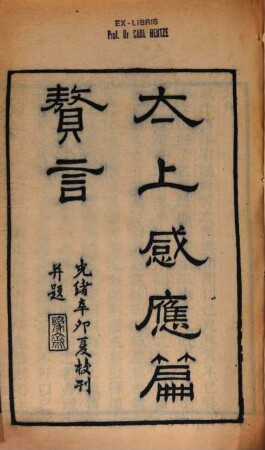 EX-LIBRIS
Prof. Dr CARL HENTZE
太上感應篇
贅言
光緒辛卯夏校刊
并題